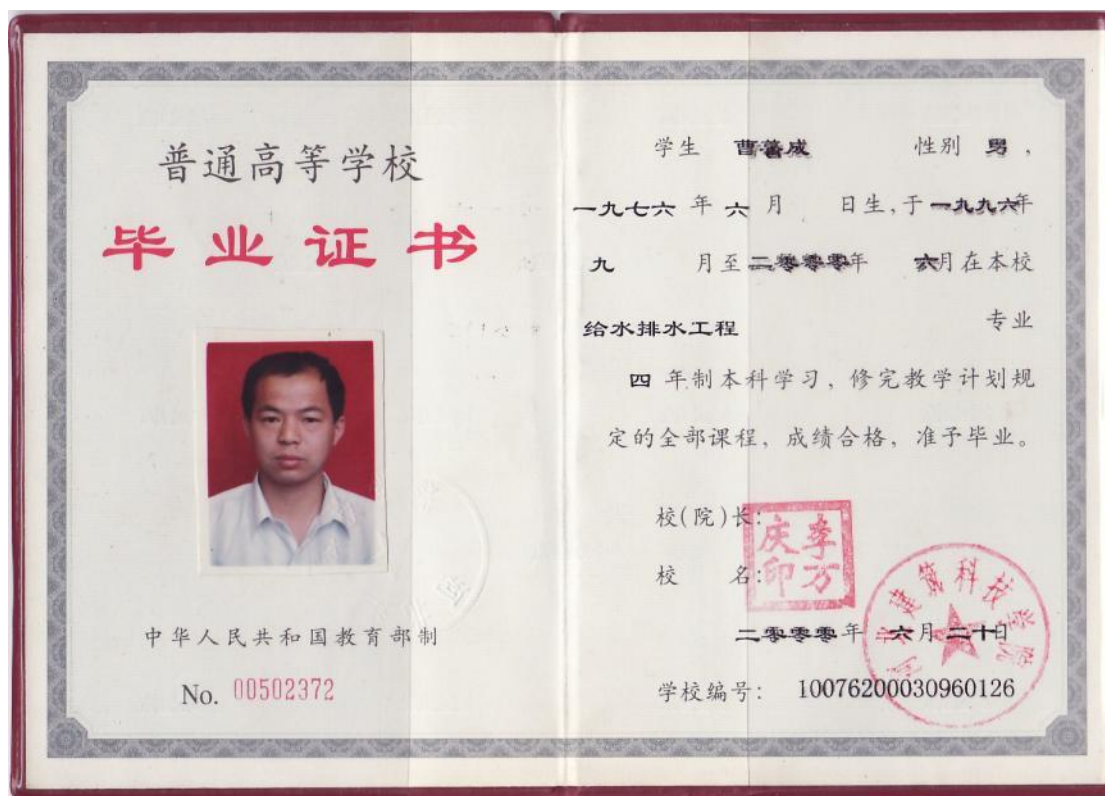 普通高等学校
毕业证书
中华人民共和国教育部制
No. 00502372
学生 性别 男，
一九七六 年 六 月 日生，于 一九九六年
九 月至 二零零零年 六月在本校
给水排水工程 专业
四 年制本科学习，修完教学计划规
定的全部课程，成绩合格，准予毕业。
校(院)长：
李万庆印
校 名：
河北建筑科技学院
二零零零年 六月二十日
学校编号： 10076200030960126